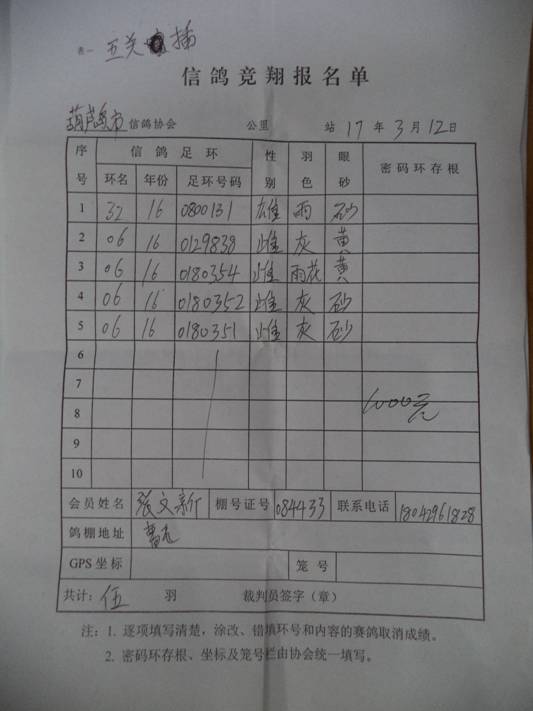 表一 五关 插
信鸽竞翔报名单
葫芦岛市信鸽协会 公里 站 17年3月12日
序号 信鸽足环 性别 羽色 眼砂 密码环存根
环名 年份 足环号码
1 32 16 0800131 雄 雨 砂
2 06 16 0129838 雌 灰 黄
3 06 16 0180354 雌 雨花 黄
4 06 16 0180352 雌 灰 砂
5 06 16 0180351 雌 灰 砂
6
7
8 1000元
9
10
会员姓名 张文新 棚号证号 084433 联系电话 18042961828
鸽棚地址
GPS坐标 笼号
共计：伍 羽 裁判员签字（章）
注：1. 逐项填写清楚，涂改、错填环号和内容的赛鸽取消成绩。
2. 密码环存根、坐标及笼号栏由协会统一填写。